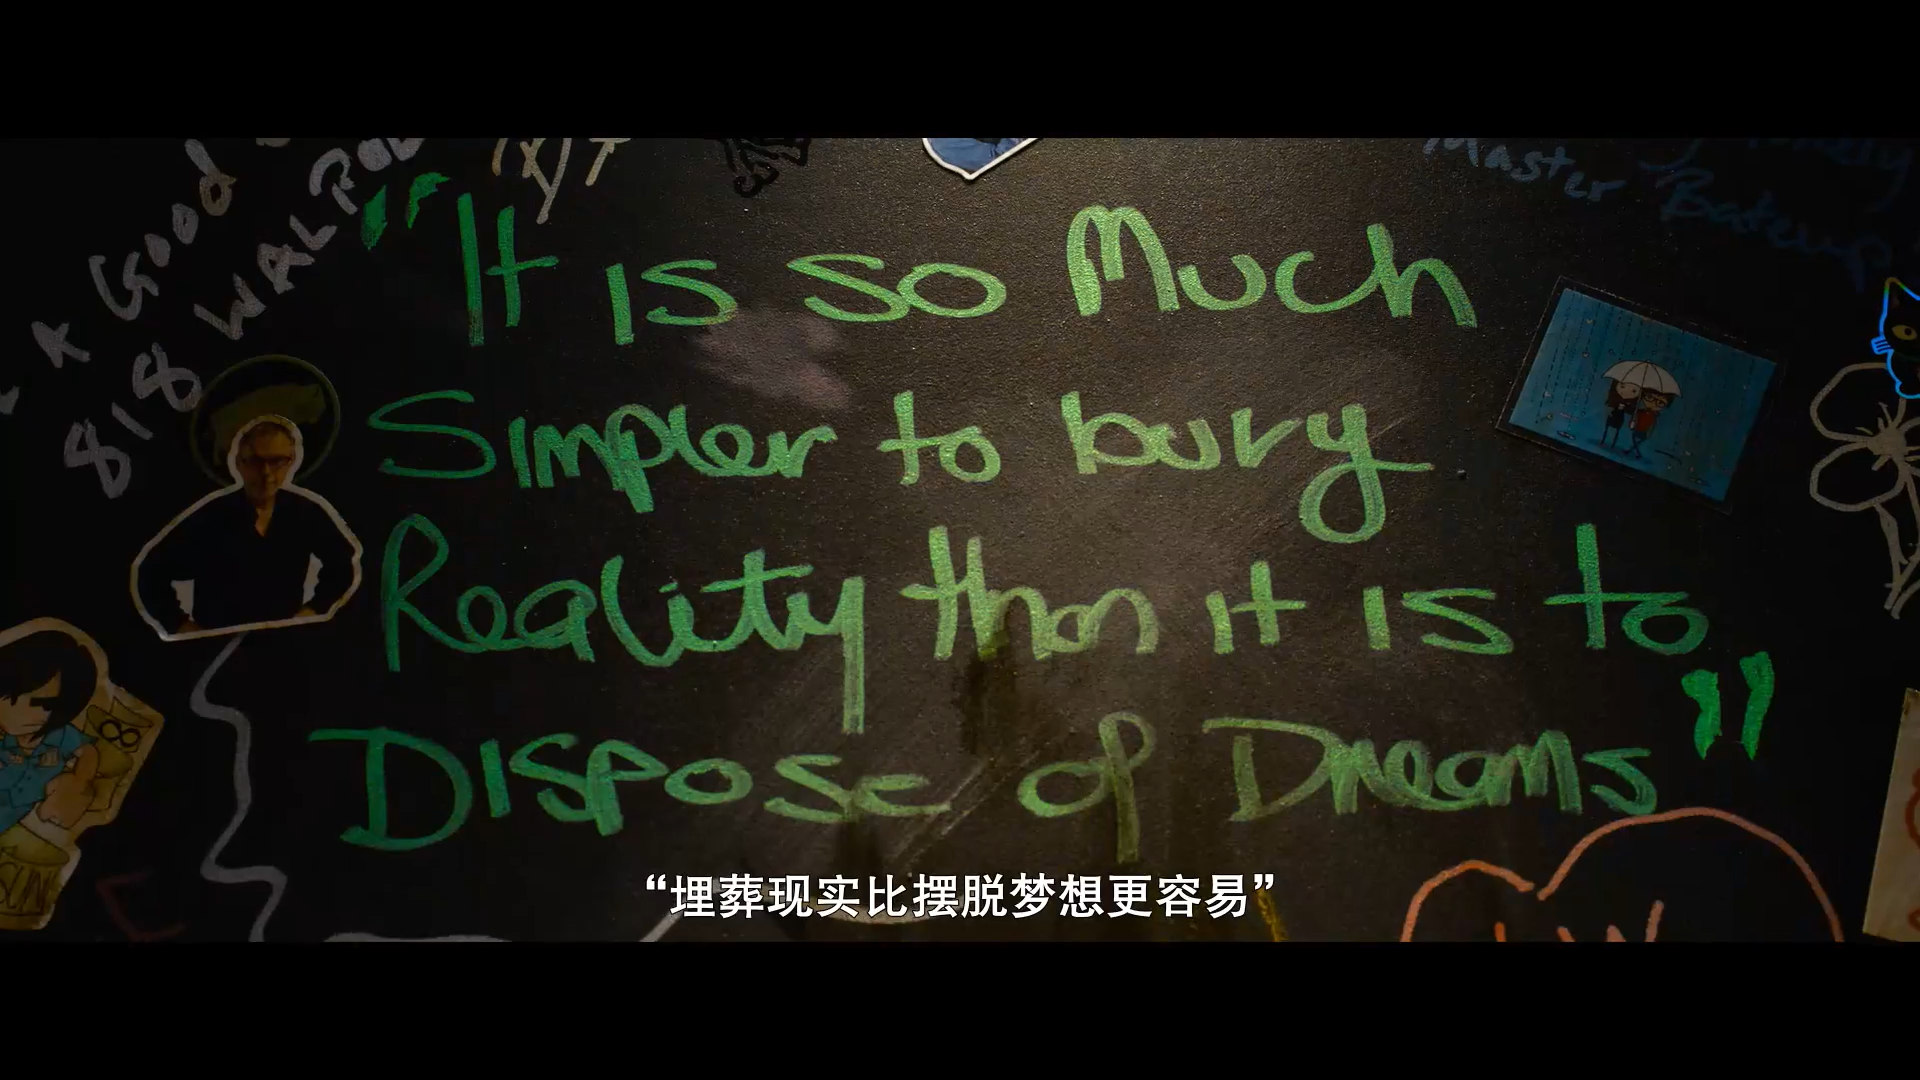 A Good
818 WALPOL
Master Batcup
"It is so Much
Simpler to bury
Reality than it is to
Dispose of Dreams"
SUN
“埋葬现实比摆脱梦想更容易”